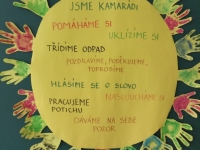 JSME KAMARÁDI
POMÁHÁME SI
UKLÍZÍME SI
TŘÍDÍME ODPAD
POZDRAVÍME, PODĚKUJEME,
POPROSÍME
HLÁSÍME SE O SLOVO
NASLOUCHÁME SI
PRACUJEME
POTICHU
DÁVÁME NA SEBE
POZOR